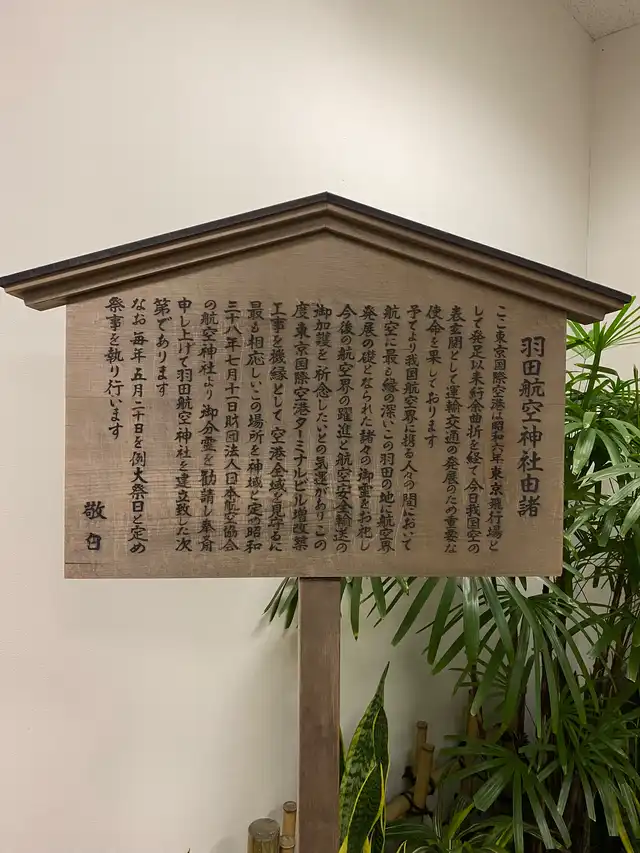 羽田航空神社由諸
ここ東京国際空港は昭和六年東京飛行場と
して発足以来紆余曲折を経て今日我国空の
表玄関として運輸交通の発展のため重要な
使命を果しております
予てより我国航空界に携る人々の間において
航空に最も縁の深いこの羽田の地に航空界
発展の礎となられた諸々の御霊をお祀し
今後の航空界の躍進と航空安全輸送の
御加護を祈念したいとの気運がありこの
度東京国際空港ターミナルビル増改築
工事を機縁として空港全域を見守るに
最も相応しいこの場所を神域と定め昭和
三十八年七月十一日財団法人日本航空協会
の航空神社より御分霊を勧請し奉斎
申し上げて羽田航空神社を建立致した次
第であります
なお毎年五月二十日を例大祭日と定め
祭事を執り行います
敬白